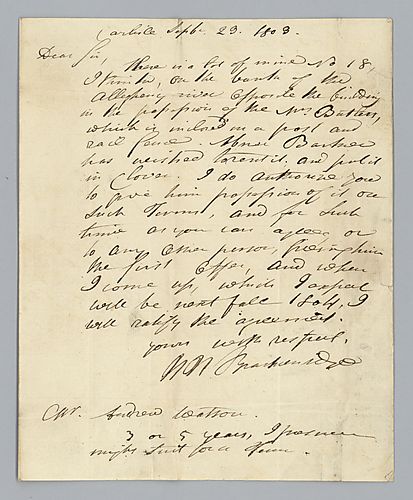 Carlisle Septbr. 23. 1803.
Dear Sir,
There is a lot of mine No 18,
I think, on the bank of the
Allegheny river opposite the building
in the possession of the Mrs Butlers,
which is inclosed in a post and
rail fence. Abner Barker
has wished to rent it and put it
in Clover. I do authorize you
to give him possession of it on
such terms, and for such
time as you can agree or
to any other person, giving him
the first offer, and when
I come up, which I expect
will be next fall 1804, I
will ratify the agreement.
yours with respect,
HH Brackenridge
Mr. Andrew Watson.
3 or 5 years, I presume
might suit for a term.